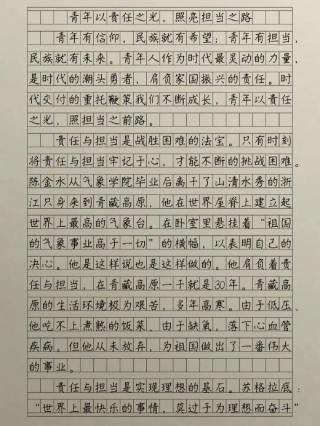 青年以责任之光，照亮担当之路
青年有信仰，民族就有希望；青年有担当，
民族就有未来。青年人作为时代最灵动的力量，
是时代的潮头勇者，肩负家国振兴的责任。时
代交付的重托鞭策我们不断成长，青年以责任
之光，照担当之前路。
责任与担当是战胜困难的法宝。只有时刻
将责任与担当牢记于心，才能不断的挑战困难。
陈金水从气象学院毕业后离开了山清水秀的浙
江只身来到青藏高原，他在世界屋脊上建立起
世界上最高的气象台。在卧室里悬挂着“祖国
的气象事业高于一切”的横幅，以表明自己的
决心。他是这样说也是这样做的。他肩负着责
任与担当，在青藏高原一干就是30年。青藏高
原的生活环境极为艰苦，多年高寒。由于低压，
他吃不上煮熟的饭菜。由于缺氧，落下心血管
疾病。但他从未放弃，为祖国做出了一番伟大
的事业。
责任与担当是实现理想的基石。苏格拉底：
“世界上最快乐的事情，莫过于为理想而奋斗”